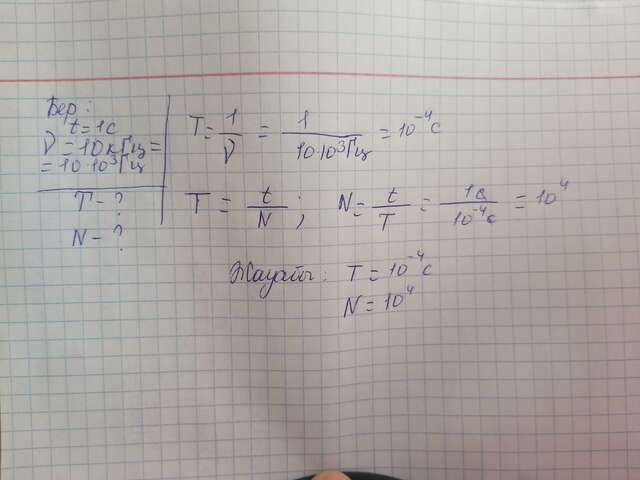 Бер:
t=1с
ν=10кГц=
=10·10³Гц
T-?
N-?
T=1/ν = 1/10·10³Гц = 10⁻⁴с
T = t/N; N= t/T = 1с/10⁻⁴с = 10⁴
Жауабы: T=10⁻⁴с
N=10⁴